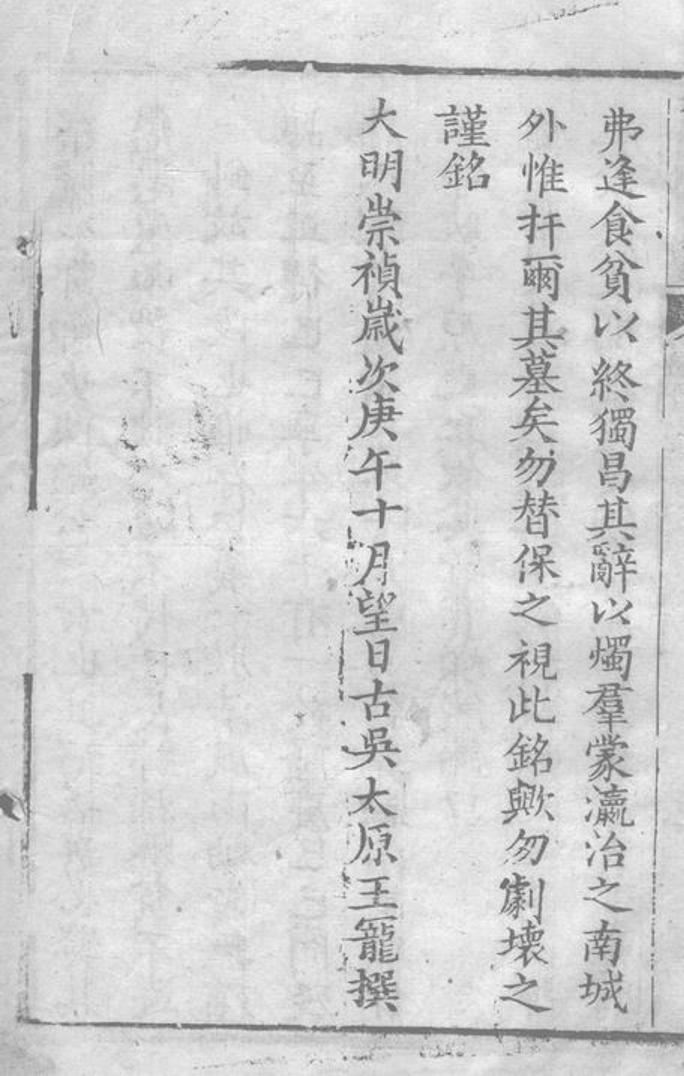 弗逢食貧以終獨昌其辭以燭羣蒙瀛治之南城
外惟扞爾其墓矣勿替保之視此銘歟勿劇壞之
謹銘
大明崇禎歲次庚午十月望日古吳太原王寵撰